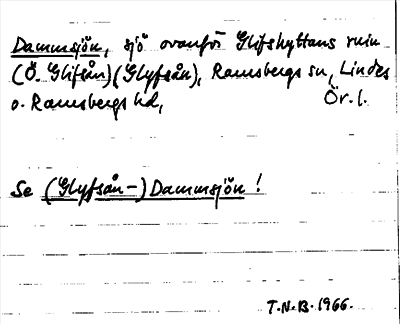 Dammsjön, sjö ovanför Glifshyttans ruin
(Ö. Glifsån) (Glyfsån), Ramsbergs sn, Lindes
o. Ramsbergs hd, Ör. l.
Se (Glyfsån-) Dammsjön!
T.N.B. 1966.